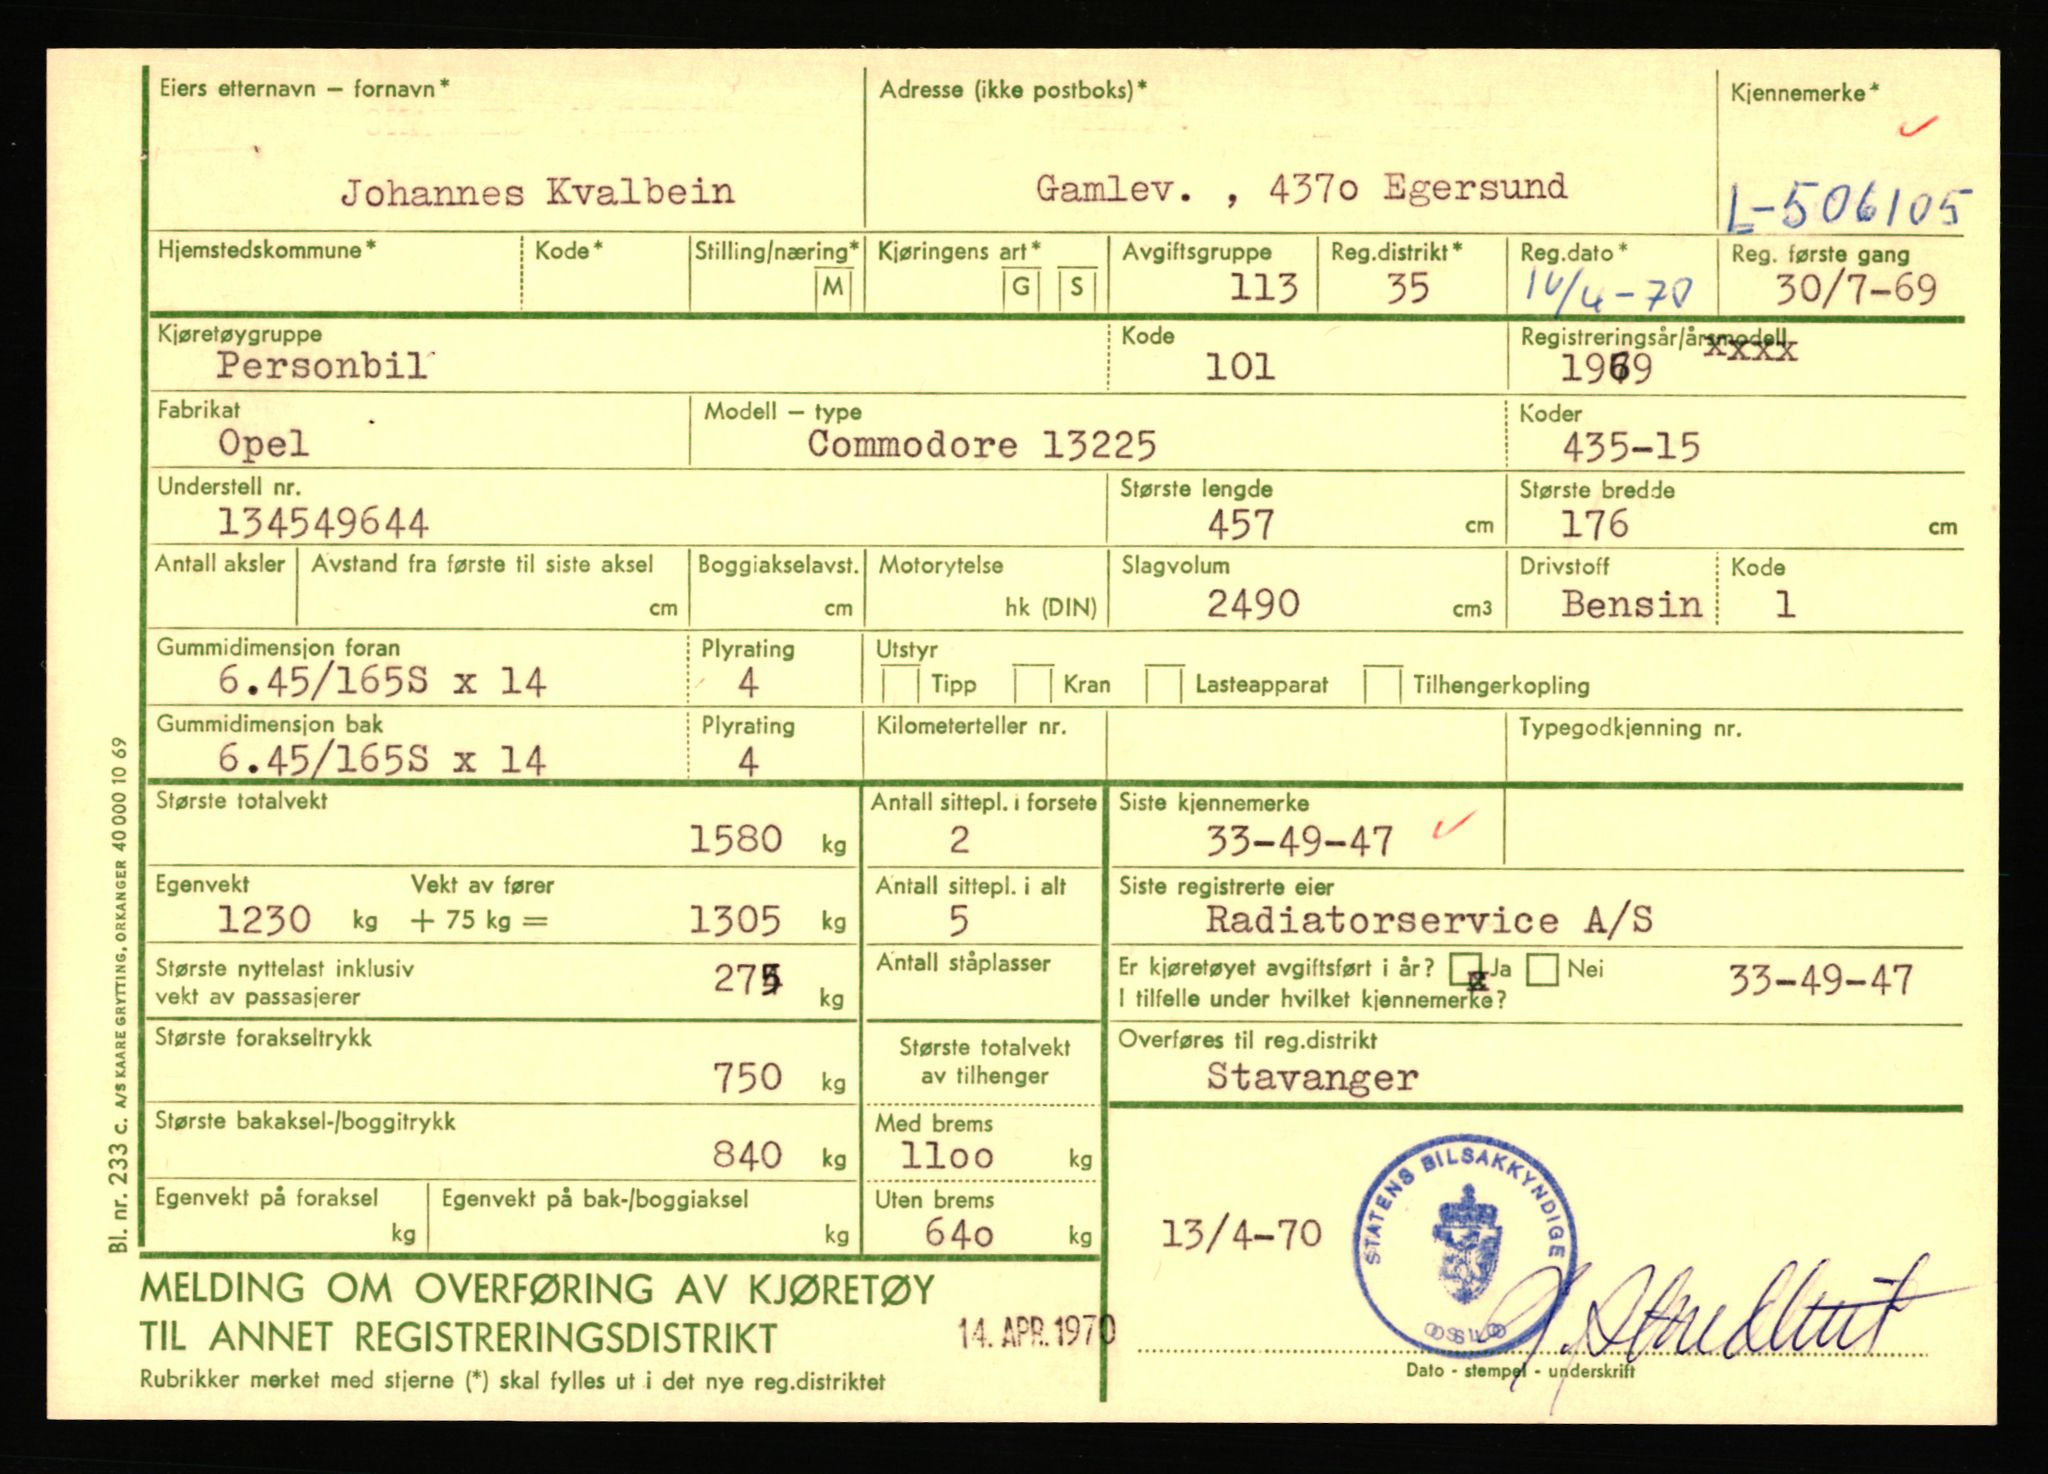 Eiers etternavn – fornavn*
Johannes Kvalbein
Adresse (ikke postboks)*
Gamlev. , 437o Egersund
Kjennemerke*
L-506105
Hjemstedskommune*
Kode*
Stilling/næring*
M
Kjøringens art*
G S
Avgiftsgruppe
113
Reg.distrikt*
35
Reg.dato*
14/4-70
Reg. første gang
30/7-69
Kjøretøygruppe
Personbil
Kode
101
Registreringsår/årsmodell
xxxx
1969
Fabrikat
Opel
Modell – type
Commodore 13225
Koder
435-15
Understell nr.
134549644
Største lengde
457 cm
Største bredde
176 cm
Antall aksler
Avstand fra første til siste aksel
cm
Boggiakselavst.
cm
Motorytelse
hk (DIN)
Slagvolum
2490 cm3
Drivstoff
Bensin
Kode
1
Gummidimensjon foran
6.45/165S x 14
Plyrating
4
Utstyr
Tipp Kran Lasteapparat Tilhengerkopling
Gummidimensjon bak
6.45/165S x 14
Plyrating
4
Kilometerteller nr.
Typegodkjenning nr.
Største totalvekt
1580 kg
Antall sittepl. i forsete
2
Siste kjennemerke
33-49-47
Egenvekt
1230 kg
Vekt av fører
+ 75 kg = 1305 kg
Antall sittepl. i alt
5
Siste registrerte eier
Radiatorservice A/S
Største nyttelast inklusiv
vekt av passasjerer
275 kg
Antall ståplasser
Er kjøretøyet avgiftsført i år? x Ja Nei
I tilfelle under hvilket kjennemerke?
33-49-47
Største forakseltrykk
750 kg
Største totalvekt
av tilhenger
Overføres til reg.distrikt
Stavanger
Største bakaksel-/boggitrykk
840 kg
Med brems
11oo kg
Egenvekt på foraksel
kg
Egenvekt på bak-/boggiaksel
kg
Uten brems
64o kg
13/4-70
STATENS BILSAKKYNDIGE
OSLO
MELDING OM OVERFØRING AV KJØRETØY
TIL ANNET REGISTRERINGSDISTRIKT
14. APR. 1970
Rubrikker merket med stjerne (*) skal fylles ut i det nye reg.distriktet
Dato - stempel - underskrift
Bl. nr. 233 c. A/S KAARE GRYTTING, ORKANGER 40 000 10 69